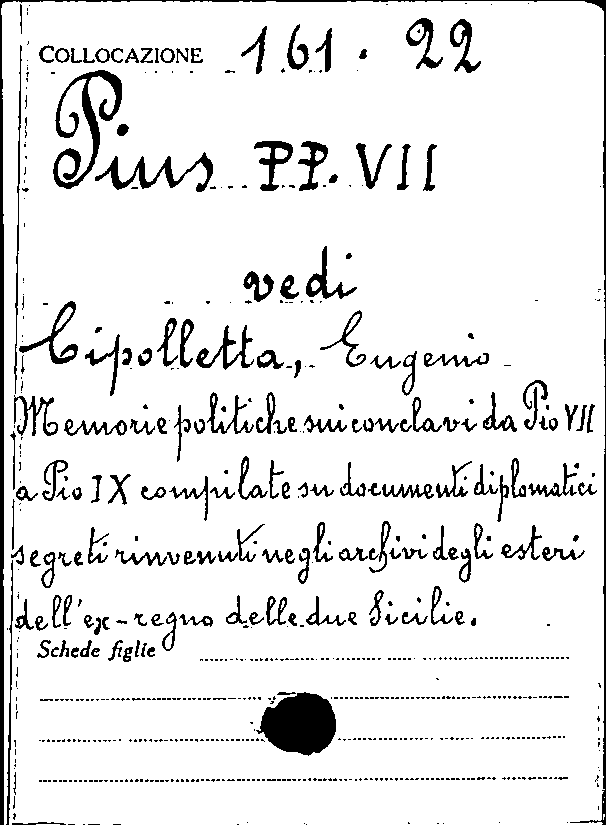 COLLOCAZIONE 161. 22
Pius PP. VII
vedi
Cipolletta, Eugenio
Memorie politiche sui conclavi da Pio VII
a Pio IX compilate su documenti diplomatici
segreti rinvenuti negli archivi degli esteri
dell'ex-regno delle due Sicilie.
Schede figlie